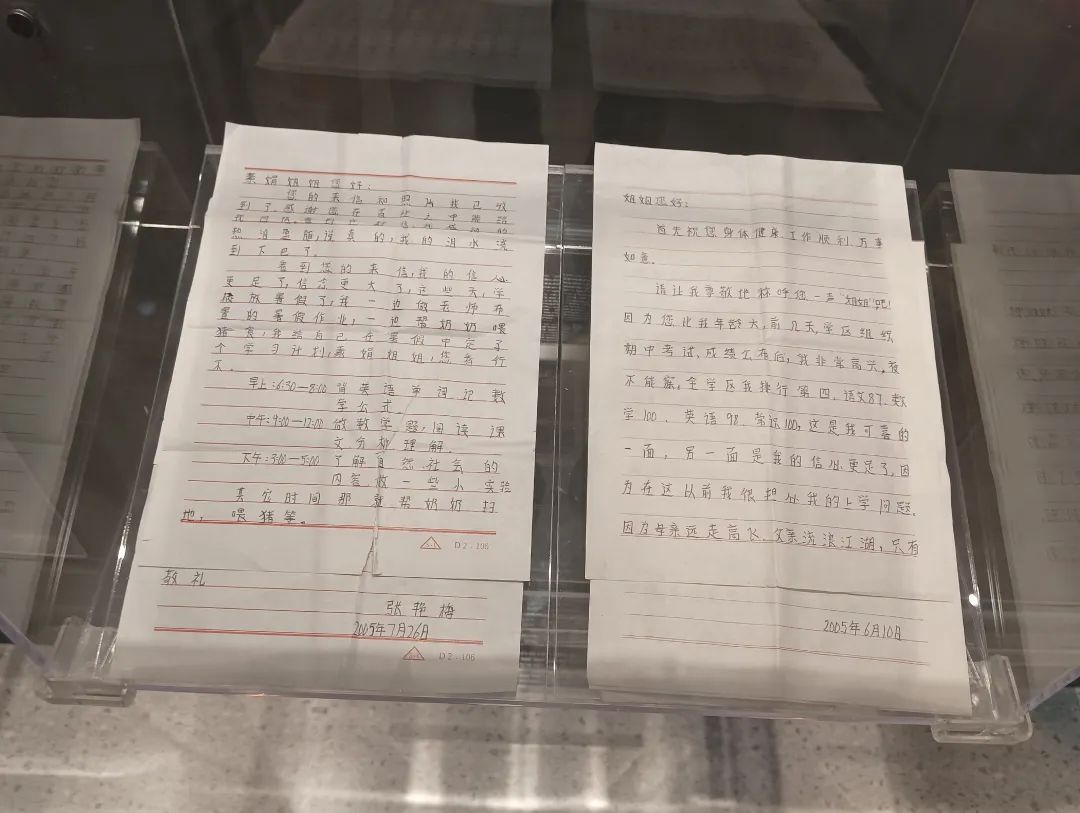 素娟姐姐您好:
您的来信和照片我已收
到了.感谢您在百忙之中
热泪盈眶,说真的,我的泪水流
到下巴了.
看到您的来信,我的信心
更足了,信念更大了,这些天,学
校放暑假了,我一边做老师布
置的暑假作业,一边帮奶奶喂
猪食,我给自己在暑假中定了
个学习计划,素娟姐姐,您看行
不.
早上:6:30—8:00 背英语单词记数
学公式.
中午:9:00—12:00 做数学题,阅读课
文分析理解.
下午:3:00—5:00 了解自然.社会的
内容做一些小实验
其它时间那就帮奶奶扫
地,喂猪等。
D2-106
敬礼
张艳梅
2005年7月26日
D2-106
姐姐您好:
首先祝您身体健康.工作顺利.万事
如意.
请让我尊敬地称呼您一声"姐姐"吧!
因为您比我年龄大,前几天,学区组织
期中考试,成绩公布后,我非常高兴.我
不能骗,全学区我排行第四.语文87.数
学100.英语98.常识100,这是我可喜的
一面,另一面是我的信心更足了,因
为在这以前我很担心我的上学问题.
因为母亲远走高飞.父亲流浪江湖,只有
2005年6月10日